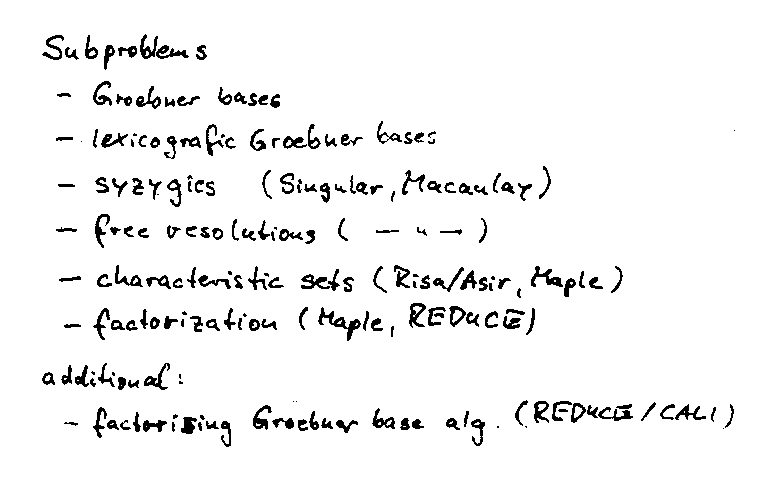 Subproblems
- Groebner bases
- lexicografic Groebner bases
- syzygies (Singular, Macaulay)
- free resolutions ( — " — )
- characteristic sets (Risa/Asir, Maple)
- factorization (Maple, REDUCE)
additional:
- factorising Groebner base alg. (REDUCE/CALI)